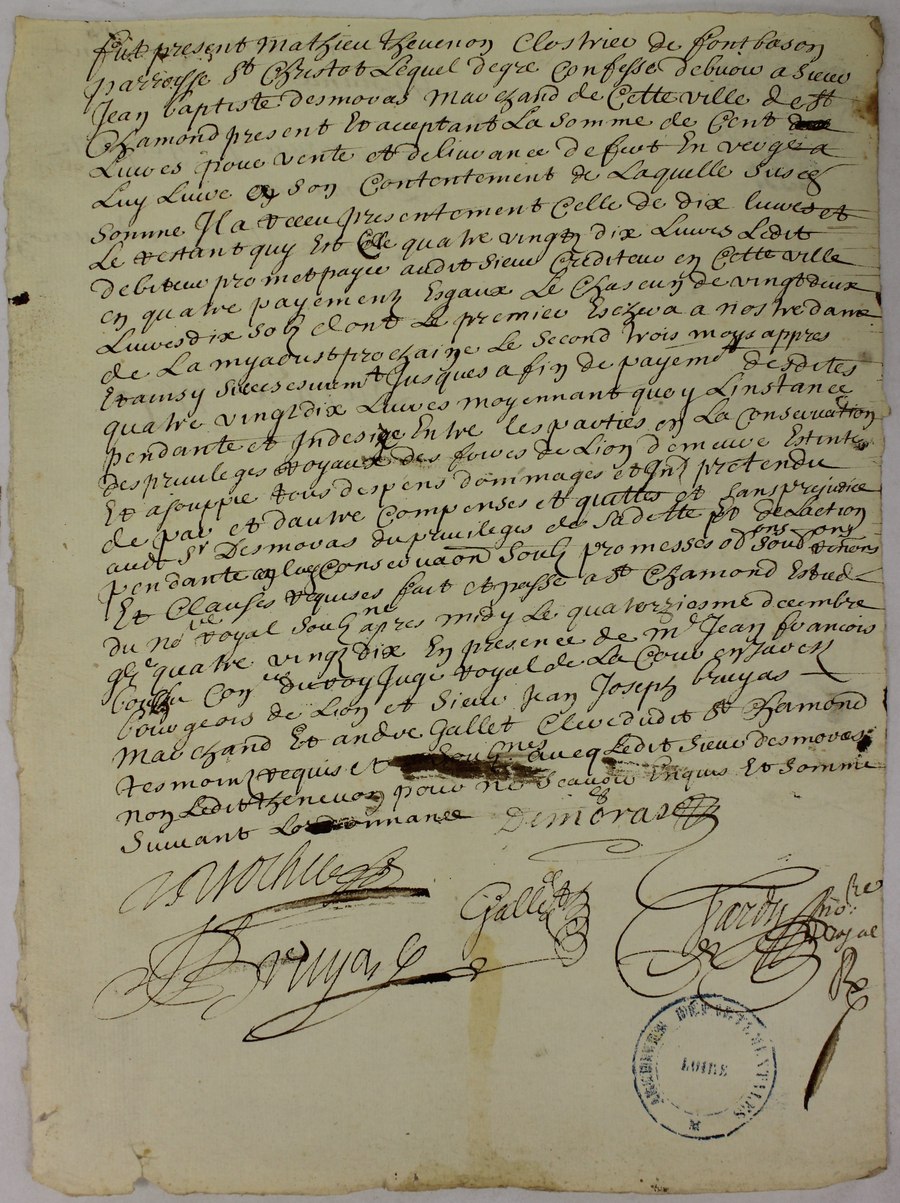 fut present Mathieu thevenon Clostrier de fontbason
parroisse St Christot Lequel degre Confesse debvoir a Sieur
Jean baptiste desmoras Marchand de Cette ville de St
Chamond present Et acceptant La somme de Cent
Livres pour vente et delivrance de fert En verge a
Luy Livré a Son Contentement de Laquelle Susd
somme Il a receu presentement Celle de dix Livres et
Le restant quy Est Celle quatre vingt dix Livres Ledit
debiteur promet payer audit Sieur Crediteur en Cette ville
en quatre payementz Esgaux Le Chascun de vingt deux
Livres dix Solz dont Le premier Escherra a nostre dame
de La my aoust prochaine Le Second trois moys appres
Et ainsy Successivemt Jusques a fin de payemt desdites
quatre vingt dix Livres moyennant quoy Linstance
pendante et Indesize Entre les parties en La Conservation
des privileges royaux des foires de Lion demeure Estinte
Et asouppie tous despens dommages et Intz pretendu
de par et dautre Compensés et quittes et sans prejudice
audt Sr Desmoras du privileges de Sa dette et de Laction
pendante en lad Conservaon Soubz promesses ob ons Soub ons
Et Clauses requises fait et passé a St Chamond Estude
du nore royal Soubzne apres midy Le quatorziesme decembre
gbre quatre vingt dix En presence de Mr Jean francois
Coner du roy Juge royal de La Cour en Jarez
bourgeois de Lion et Sieur Jean Joseph bruyas
Marchand Et andré Gallet Clerc dudit St Chamond
tesmoins requis et Soubznes avec Ledit Sieur desmoras
non Ledit thevenon pour ne Scavoir Enquis Et Sommé
Suivant Lordonnance Demoras
Gallet
Bruyas
Tardy nore
Royal
ARCHIVES DEPARTEMENTALES
LOIRE